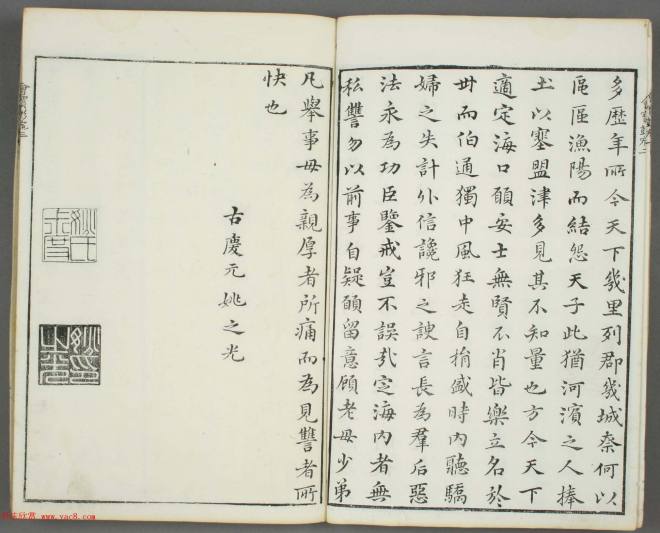 多歷年所今天下幾里列郡幾城柰何以
區區漁陽而結怨天子此猶河濱之人捧
土以塞盟津多見其不知量也方今天下
適定海內願安士無賢不肖皆樂立名於
世而伯通獨中風狂走自捐盛時內聽驕
婦之失計外信讒邪之諛言長為羣后惡
法永為功臣鑒戒豈不誤哉定海內者無
私讐勿以前事自疑願留意顧老母少弟
凡舉事毋為親厚者所痛而為見讐者所
快也
古慶元姚之光
www.yac8.com